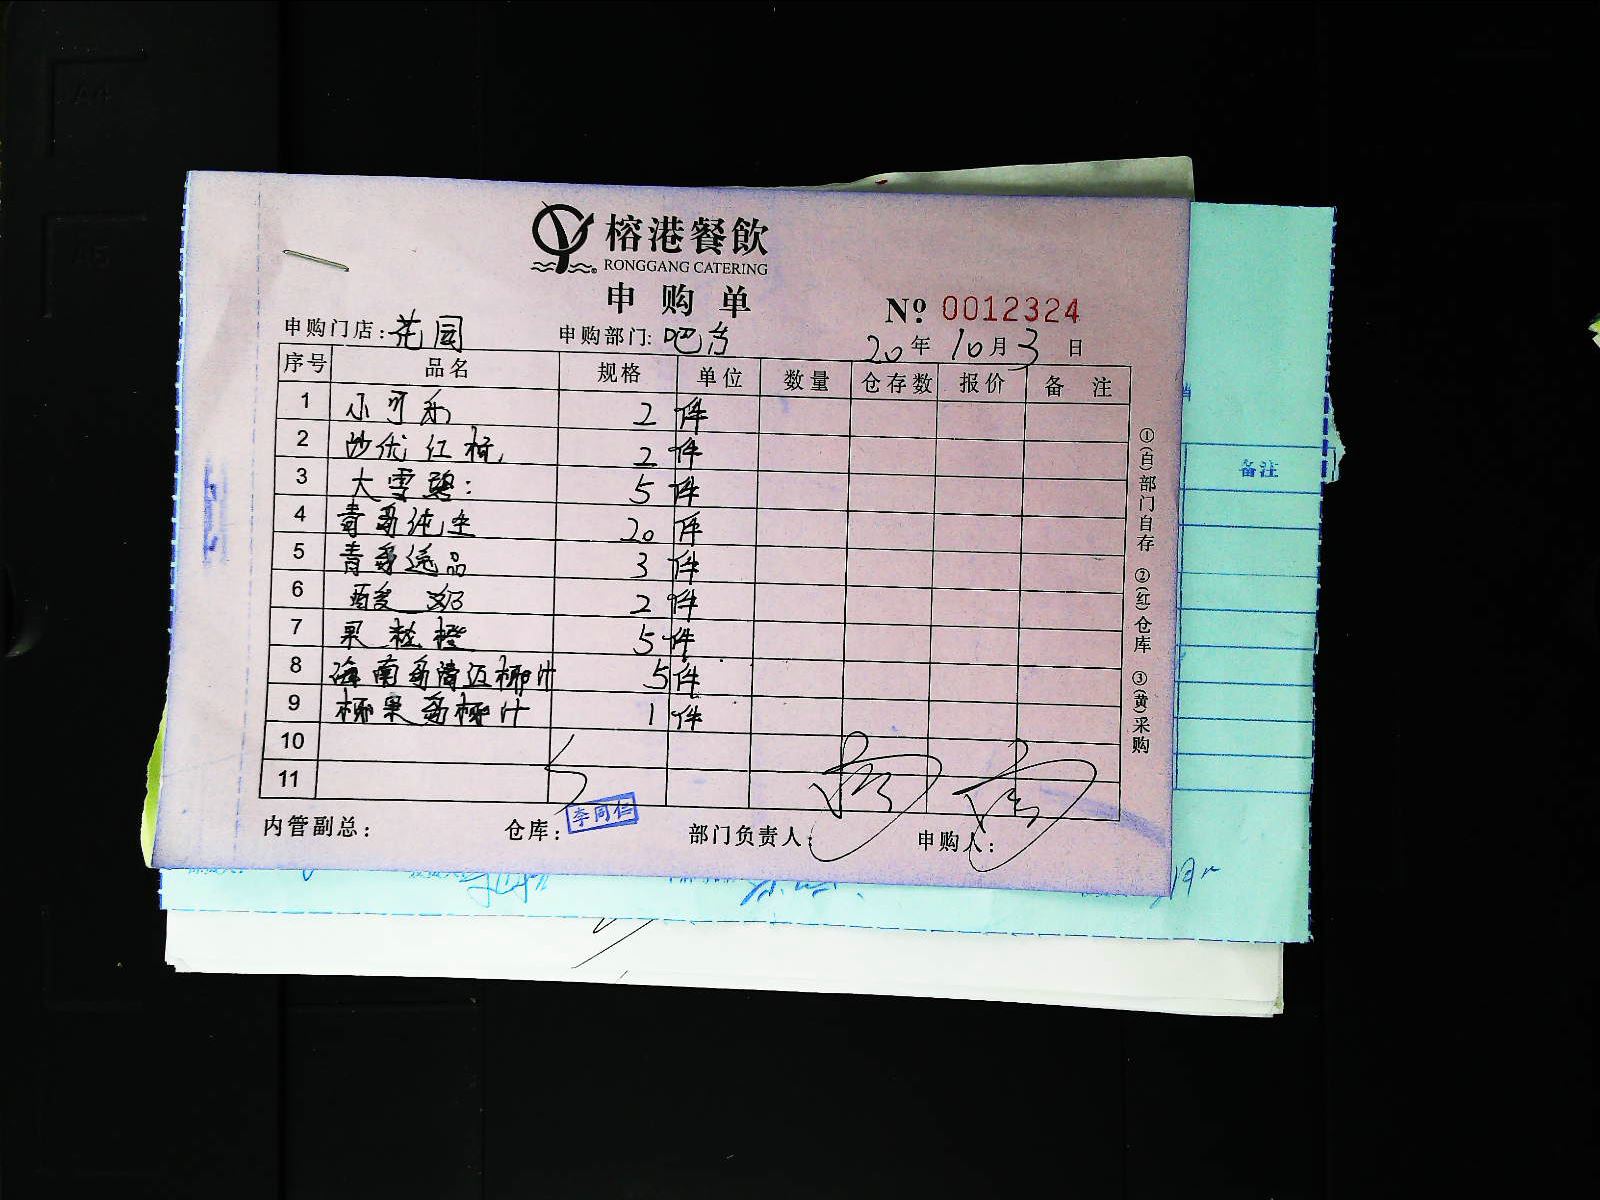 榕港餐飲
RONGGANG CATERING
申购单
№ 0012324
申购门店: 花园 申购部门: 吧台 20年10月3日
序号 品名 规格 单位 数量 仓存数 报价 备注
1 小可乐 2 件
2 沙优红桔 2 件
3 大雪碧: 5 件
4 青岛纯生 20 件
5 青岛逸品 3 件
6 酸奶 2 件
7 果粒橙 5 件
8 海南岛清迈椰汁 5 件
9 椰果岛椰汁 1 件
10
11
内管副总: 仓库: 李同仁 部门负责人: 申购人:
①(白)部门自存 ②(红)仓库 ③(黄)采购
备注